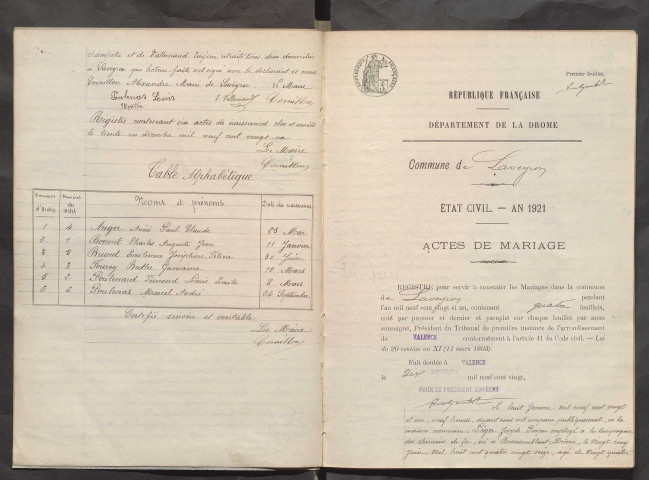 et de Vallemand Eugène retraité tous deux domiciliés
à Laveyron qui lecture faite ont signé avec le déclarant et nous
Cornillon Alexandre Maire de Laveyron. Le Maire
Poulenas Louis
E. Vallemand
Cornillon
Registre contenant six actes de naissances clos et arrêté
le trente un décembre mil neuf cent vingt un
Le Maire
Cornillon
Table Alphabétique
Numéros d'ordre
Numéros des actes
Noms et prénoms
Date des naissances
1 4 Auger Aimé Paul Claude 23 Mai
2 1 Charles Auguste Jean 11 Janvier
3 5 Emilienne Joséphine Hélène 30 Juin
4 3 Berthe Germaine 10 Mars
5 2 Fernand Louis Emile 8 Mars
6 6 Poulenas Marcel André 24 Septembre
Certifié sincère et véritable
Le Maire
Cornillon
Premier feuillet.
RÉPUBLIQUE FRANÇAISE
DÉPARTEMENT DE LA DROME
Commune de Laveyron
ÉTAT CIVIL. — AN 1921
ACTES DE MARIAGE
REGISTRE pour servir à constater les Mariages dans la commune
de Laveyron pendant
l'an mil neuf cent vingt et un, contenant quatre feuillets,
coté par premier et dernier et paraphé sur chaque feuillet par nous
soussigné, Président du Tribunal de première instance de l'arrondissement
de VALENCE conformément à l'article 41 du Code civil. — Loi
du 20 ventôse an XI (11 mars 1803).
Fait double à VALENCE
le Dix mil neuf cent vingt,
POUR LE PRÉSIDENT EMPÊCHÉ
Le huit Janvier mil neuf cent vingt
et un, neuf heures, devant nous ont comparu publiquement, en la
maison commune: Léger Joseph employé à la compagnie
des chemins de fer, né à Drôme, le vingt cinq
Juin mil huit cent quatre vingt seize, âgé de vingt quatre